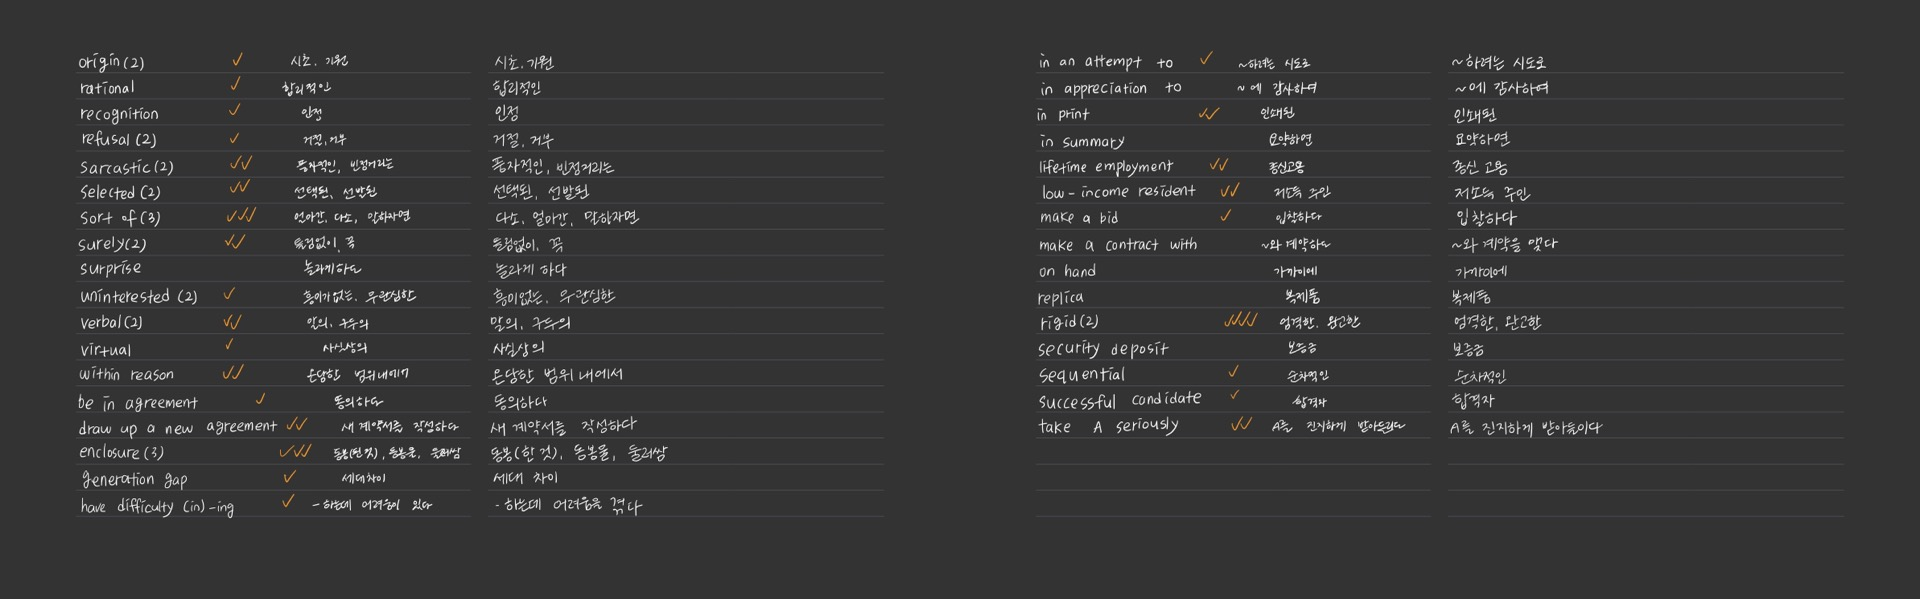 origin(2) 시초, 기원 시초, 기원
rational 합리적인 합리적인
recognition 인정 인정
refusal(2) 거절, 거부 거절, 거부
sarcastic(2) 풍자적인, 빈정거리는 풍자적인, 빈정거리는
selected(2) 선택된, 선발된 선택된, 선발된
sort of(3) 얼마간, 다소, 말하자면 다소, 얼마간, 말하자면
surely(2) 틀림없이, 꼭 틀림없이, 꼭
surprise 놀라게하다 놀라게 하다
uninterested (2) 흥미가없는, 무관심한 흥미없는, 무관심한
verbal(2) 말의, 구두의 말의, 구두의
virtual 사실상의 사실상의
within reason 온당한 범위내에서 온당한 범위 내에서
be in agreement 동의하다 동의하다
draw up a new agreement 새 계약서를 작성하다 새 계약서를 작성하다
enclosure(3) 동봉(한것), 동봉물, 울러쌈 동봉(한 것), 동봉물, 둘러쌈
generation gap 세대차이 세대 차이
have difficulty (in) -ing -하는데 어려움이 있다 -하는데 어려움을 겪다
in an attempt to ~하려는 시도로 ~하려는 시도로
in appreciation to ~에 감사하여 ~에 감사하여
in print 인쇄된 인쇄된
in summary 요약하면 요약하면
lifetime employment 종신고용 종신 고용
low-income resident 저소득 주민 저소득 주민
make a bid 입찰하다 입찰하다
make a contract with ~와 계약하다 ~와 계약을 맺다
on hand 가까이에 가까이에
replica 복제품 복제품
rigid(2) 엄격한, 완고한 엄격한, 완고한
security deposit 보증금 보증금
sequential 순차적인 순차적인
successful candidate 합격자 합격자
take A seriously A를 진지하게 받아들이다 A를 진지하게 받아들이다